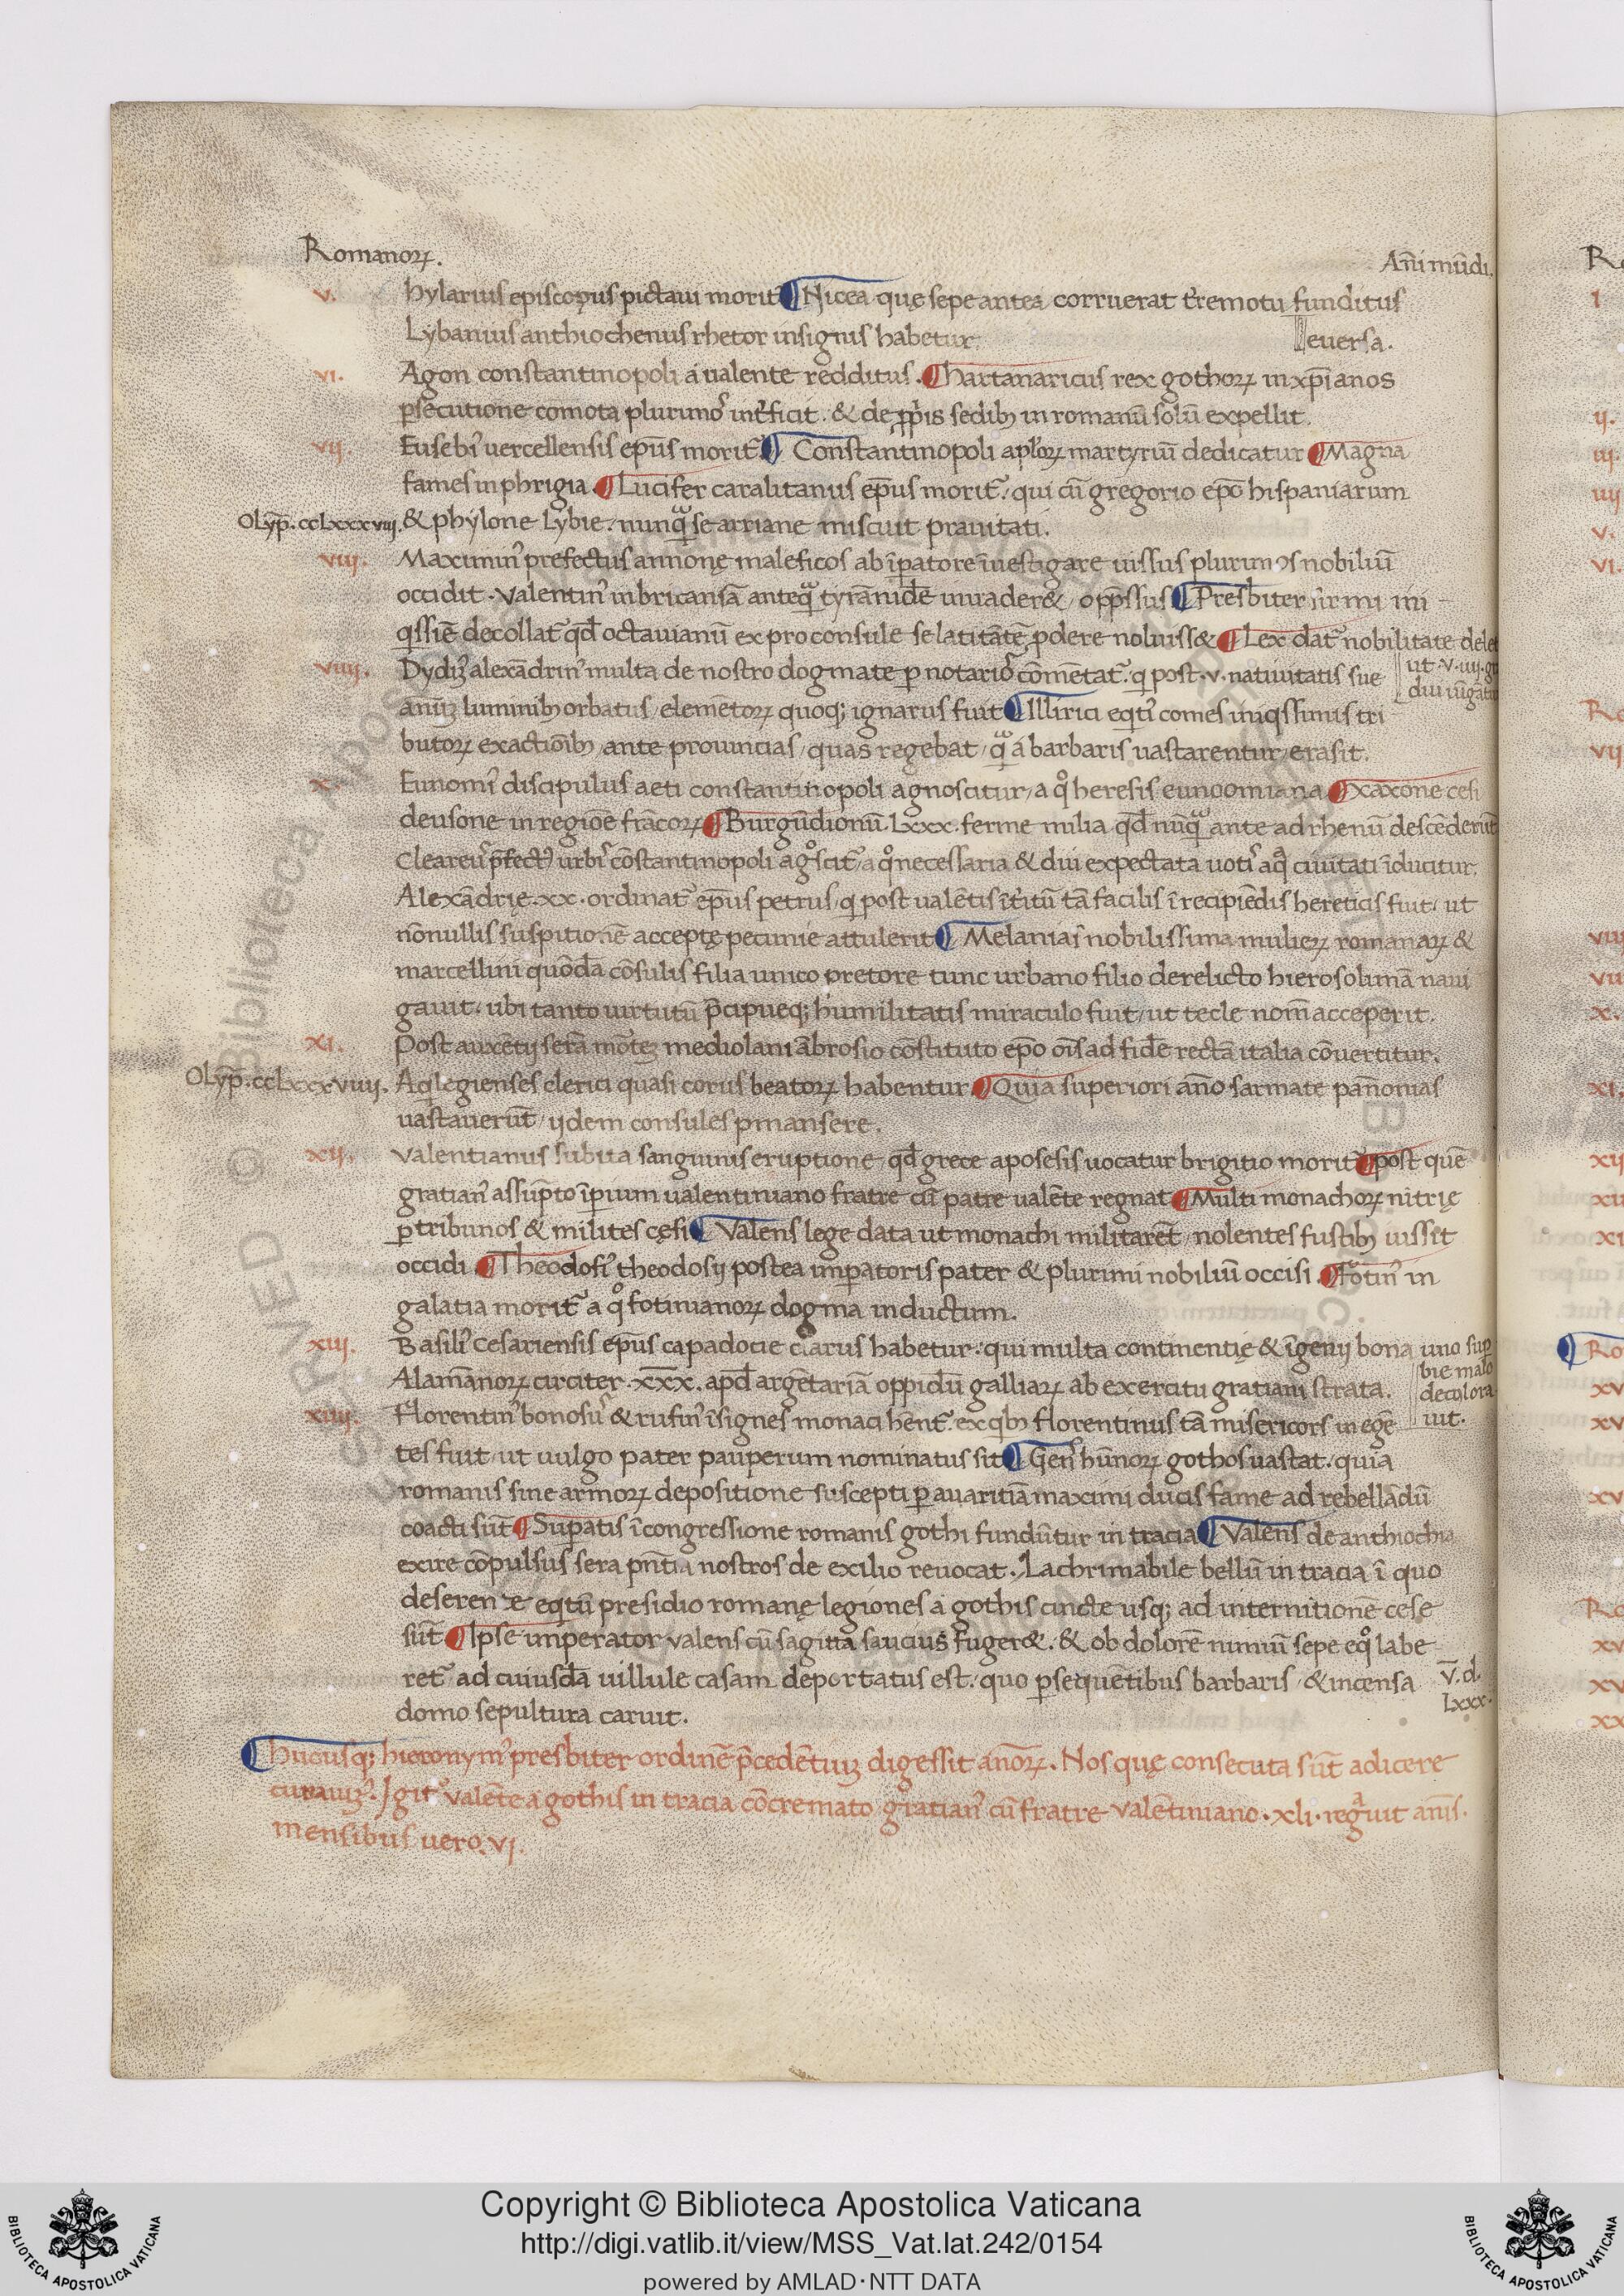 Romanoꝝ.
Añi mūdi.
v. hylarius episcopus pictaui moritᷣ ¶ Nicea quę sepe antea corruerat t̓remotu funditus
Lybanius anthiochenus rhetor insignis habetur. euersa.
vi. Agon constantinopoli a ualente redditus. ¶ hartanaricus rex gothoꝝ in xp̄ianos
ꝑsecutione comota plurimoˀ int̓ficit. & de ꝓpriis sedibꝫ in romanū solū expellit.
vii. Eusebiꝰ uercellensis ep̄us moritᷣ ¶ Constantinopoli apl̓oꝝ martyriū dedicatur ¶ Magna
fames in phrigia. ¶ Lucifer caralitanus ep̄us moritᷣ, qui cū gregorio ep̄o hispaniarum
Olyp̄. ccLxxxviii. & phylone Lybie. nunqᷓ se arriane miscuit prauitati.
viii. Maximinꝰ prefectus annonę maleficos ab īꝑatore īuestigare iussus plurimos nobiliū
occidit. Valentinꝰ in bricansā anteqᷓ tyrānidē inuader& / opp̄ssus ¶ Presbiter sirmi ini
qissiē decollatᷣ qd̄ octauianū ex proconsule se latitātē ꝓdere noluiss& ¶ Lex datᷣ nobilitate delet
viiii. Dydimꝰ alexādrinꝰ multa de nostro dogmate ꝑ notarioˀ cōmētatᷣ. qi post. v. natiuitatis sue
ut. v. iiij. gr
diu iūgātur
annū luminibꝫ orbatus / elemētoꝝ quoqꝫ ignarus fuit ¶ Illirici eqitiꝰ comes iniqissimis tri
butoꝝ exactioībꝫ / ante prouincias / quas regebat / qᷓ a barbaris uastarentur / erasit.
x. Eunomiꝰ discipulus aeti constantinopoli agnoscitur / a qͦ heresis eunoomiana ¶ Xaxone cesi
deusone in regioē frācoꝝ ¶ Burgūdionū. Lxxx. ferme milia qd̄ nūqᷓ ante ad rhenū descēderūt
Clearcꝰ p̄fectꝰ urbis cōstantinopoli agͦscitᷣ / a qͦ necessaria & diu expectata uotis aqᷓ ciuitati īducitur.
Alexādrię. xx. ordinatᷣ ep̄us petrus / qi post ualētis īt̓itū tā facilis ī recipiēdis hereticis fuit / ut
nōnullis suspitionē acceptę pecunie attulerit ¶ Melania nobilissima mulieꝝ romanaꝝ &
marcellini quōdā cōsulis filia unico pretore tunc urbano filio derelicto hierosolimā naui
gauit. ubi tanto uirtutū p̄cipueqꝫ humilitatis miraculo fuit / ut tecle nom̄ acceperit.
xi. Post auxētij serā mōteꝫ mediolani ābrosio cōstituto ep̄o oīs ad fidē rectā italia cōuertitur.
Olyp̄. ccLxxxviiij. Aqilegienses clerici quasi corus beatoꝝ habentur ¶ Quia superiori āno sarmate pānonias
uastauerūt / ijdem consules ꝑmansere.
xij. Valentianus subita sanguinis eruptione qd̄ grece aposesis uocatur brigitio moritᷣ ¶ post quē
gratianꝰ assūpto īperium ualentiniano fratre cū patre ualēte regnat ¶ Multi monachoꝝ nitrię
ꝑ tribunos & milites cęsi ¶ Valens lege data ut monachi militarēt / nolentes fustibꝫ iussit
occidi ¶ Theodosiꝰ theodosij postea imperatoris pater & plurimi nobiliū occisi. ¶ Fotinꝰ in
galatia moritᷣ a qͦ fotinianoꝝ dogma inductum.
xiij. Basiliꝰ cesariensis ep̄us capadocie clarus habetur. qui multa continentię & īgenij bona uno suꝑ
bie malo
decolora
uit.
Alamānoꝝ circiter. xxx. apd̄ argētariā oppidū galliaꝝ ab exercitu gratiani strata.
xiiij. Florentinꝰ bonosus & rufinꝰ īsignes monaci hēntᷣ. ex qibꝫ florentinus tā misericors in egē
tes fuit / ut uulgo pater pauperum nominatus sit ¶ Gens hūnoꝝ gothos uastat. quia
romanis sine armoꝝ depositione suscepti ꝑ auaritiā maximi ducis fame ad rebellādū
coacti sūt ¶ Supatis ī congressione romanis gothi fundūtur in tracia ¶ Valens de anthiochia
exire cōpulsus sera pn̄tia nostros de exilio reuocat. Lachrimabile bellū in tracia ī quo
deserente eqitū presidio romanę legiones a gothis cincte usqꝫ ad internitionē cese
sūt ¶ Ipse imperator valens cū sagitta saucius fuger&. & ob dolorē nimiū sepe eqͦ labe
retᷣ ad cuiusdā uillule casam deportatus est. quo ꝑsequētibus barbaris / & incensa
v̄. d.
Lxxx.
domo sepultura caruit.
¶ hucusqꝫ hieronymꝰ presbiter ordinē p̄cedētiuꝫ digessit ānoꝝ. Nos quę consecuta sūt adicere
curauimꝰ. Igitᷣ valēte a gothis in tracia cōcremato gratianꝰ cū fratre valētiniano. xli. regᷓuit anīs.
mensibus uero. vi.
Copyright © Biblioteca Apostolica Vaticana
http://digi.vatlib.it/view/MSS_Vat.lat.242/0154
powered by AMLAD·NTT DATA
BIBLIOTECA APOSTOLICA VATICANA
BIBLIOTECA APOSTOLICA VATICANA